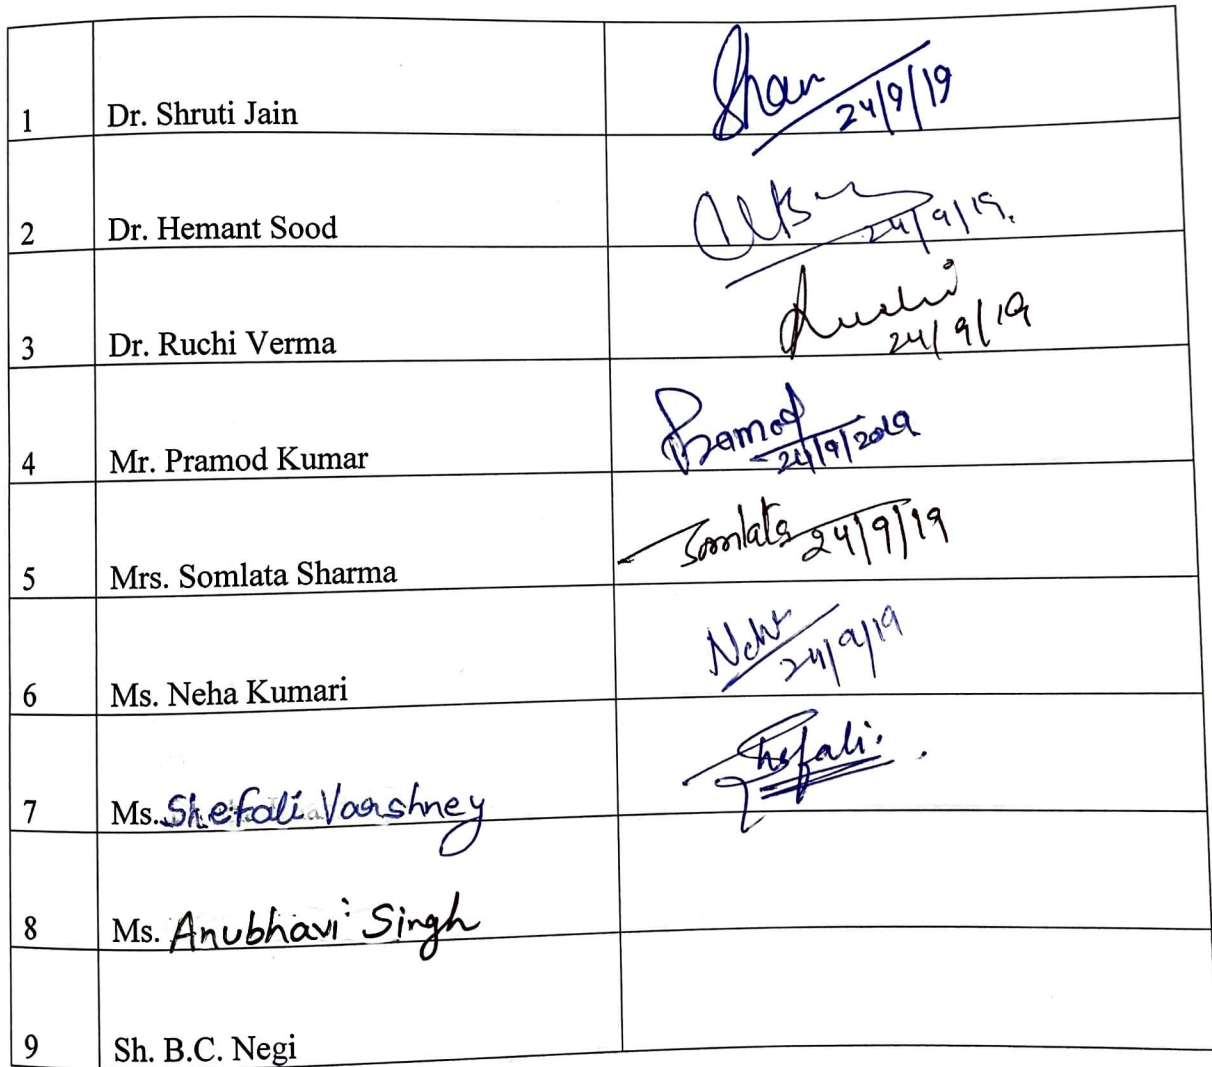 1 Dr. Shruti Jain 24/9/19
2 Dr. Hemant Sood 24/9/19.
3 Dr. Ruchi Verma Ruchi 24/9/19
4 Mr. Pramod Kumar Pramod 24/9/2019
5 Mrs. Somlata Sharma Somlata 24/9/19
6 Ms. Neha Kumari Neha 24/9/19
7 Ms. Shefali Varshney Shefali.
8 Ms. Anubhavi Singh
9 Sh. B.C. Negi